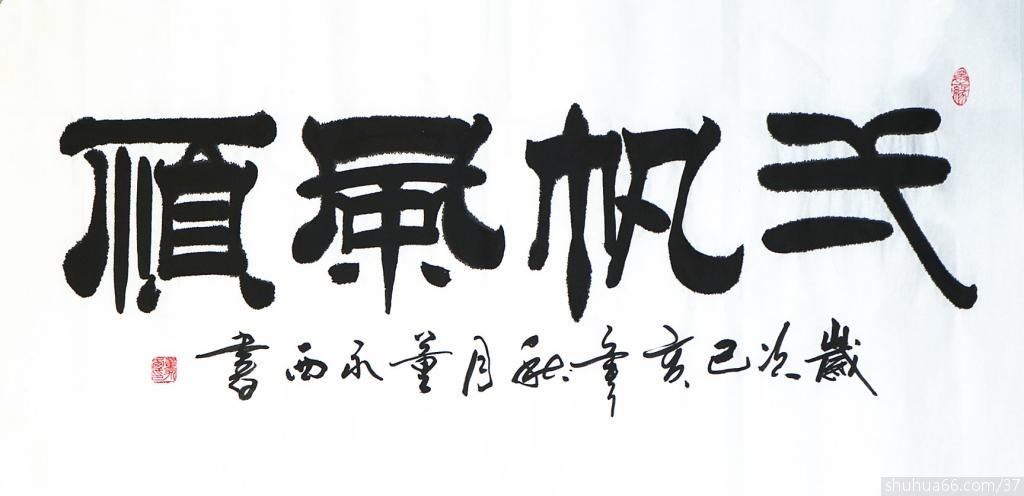 弌帆風順
歲次己亥年秋月董永西書
shuhua66.com/37